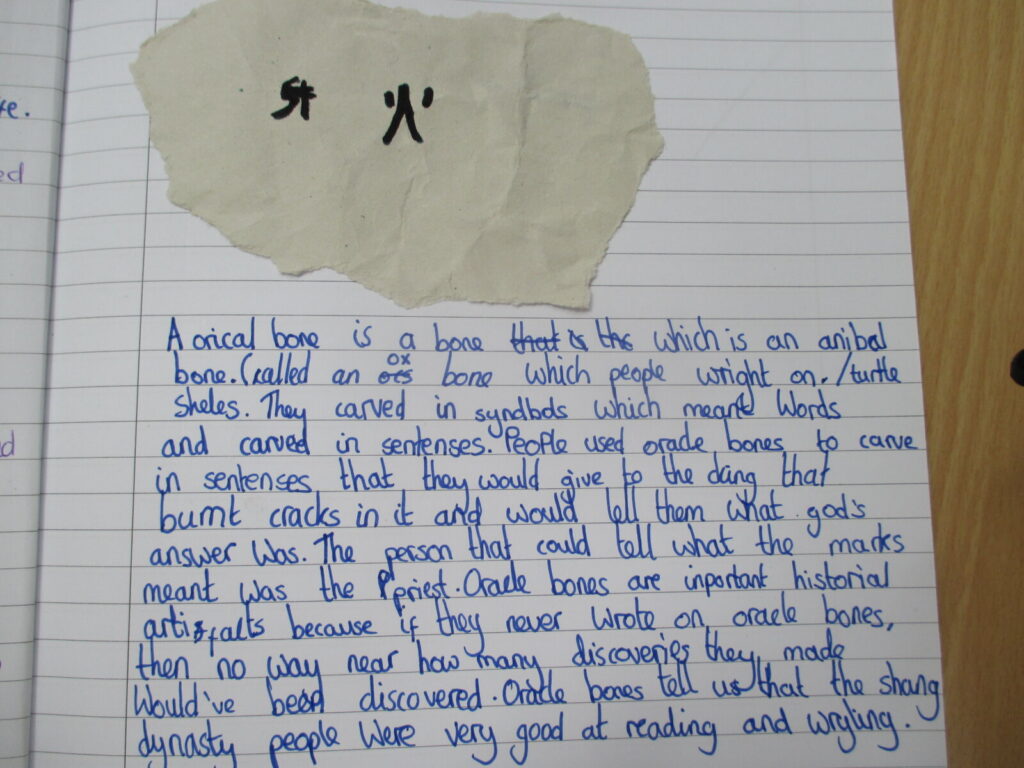 te.
ed
d
A orical bone is a bone that is ths which is an anibal
bone. (called an ox bone which people wright on. /turtle
sheles. They carved in syndbols which meant words
and carved in sentenses. People used oracle bones to carve
in sentenses that they would give to the ding that
burnt cracks in it and would tell them what god's
answer was. The person that could tell what the marks
meant was the Priest. Oracle bones are inportant historial
artisfalts because if they never wrote on oracle bones,
then no way near how many discoveries they made
Would've been discovered. Oracle bones tell us that the shang
dynasty people were very good at reading and wryting.